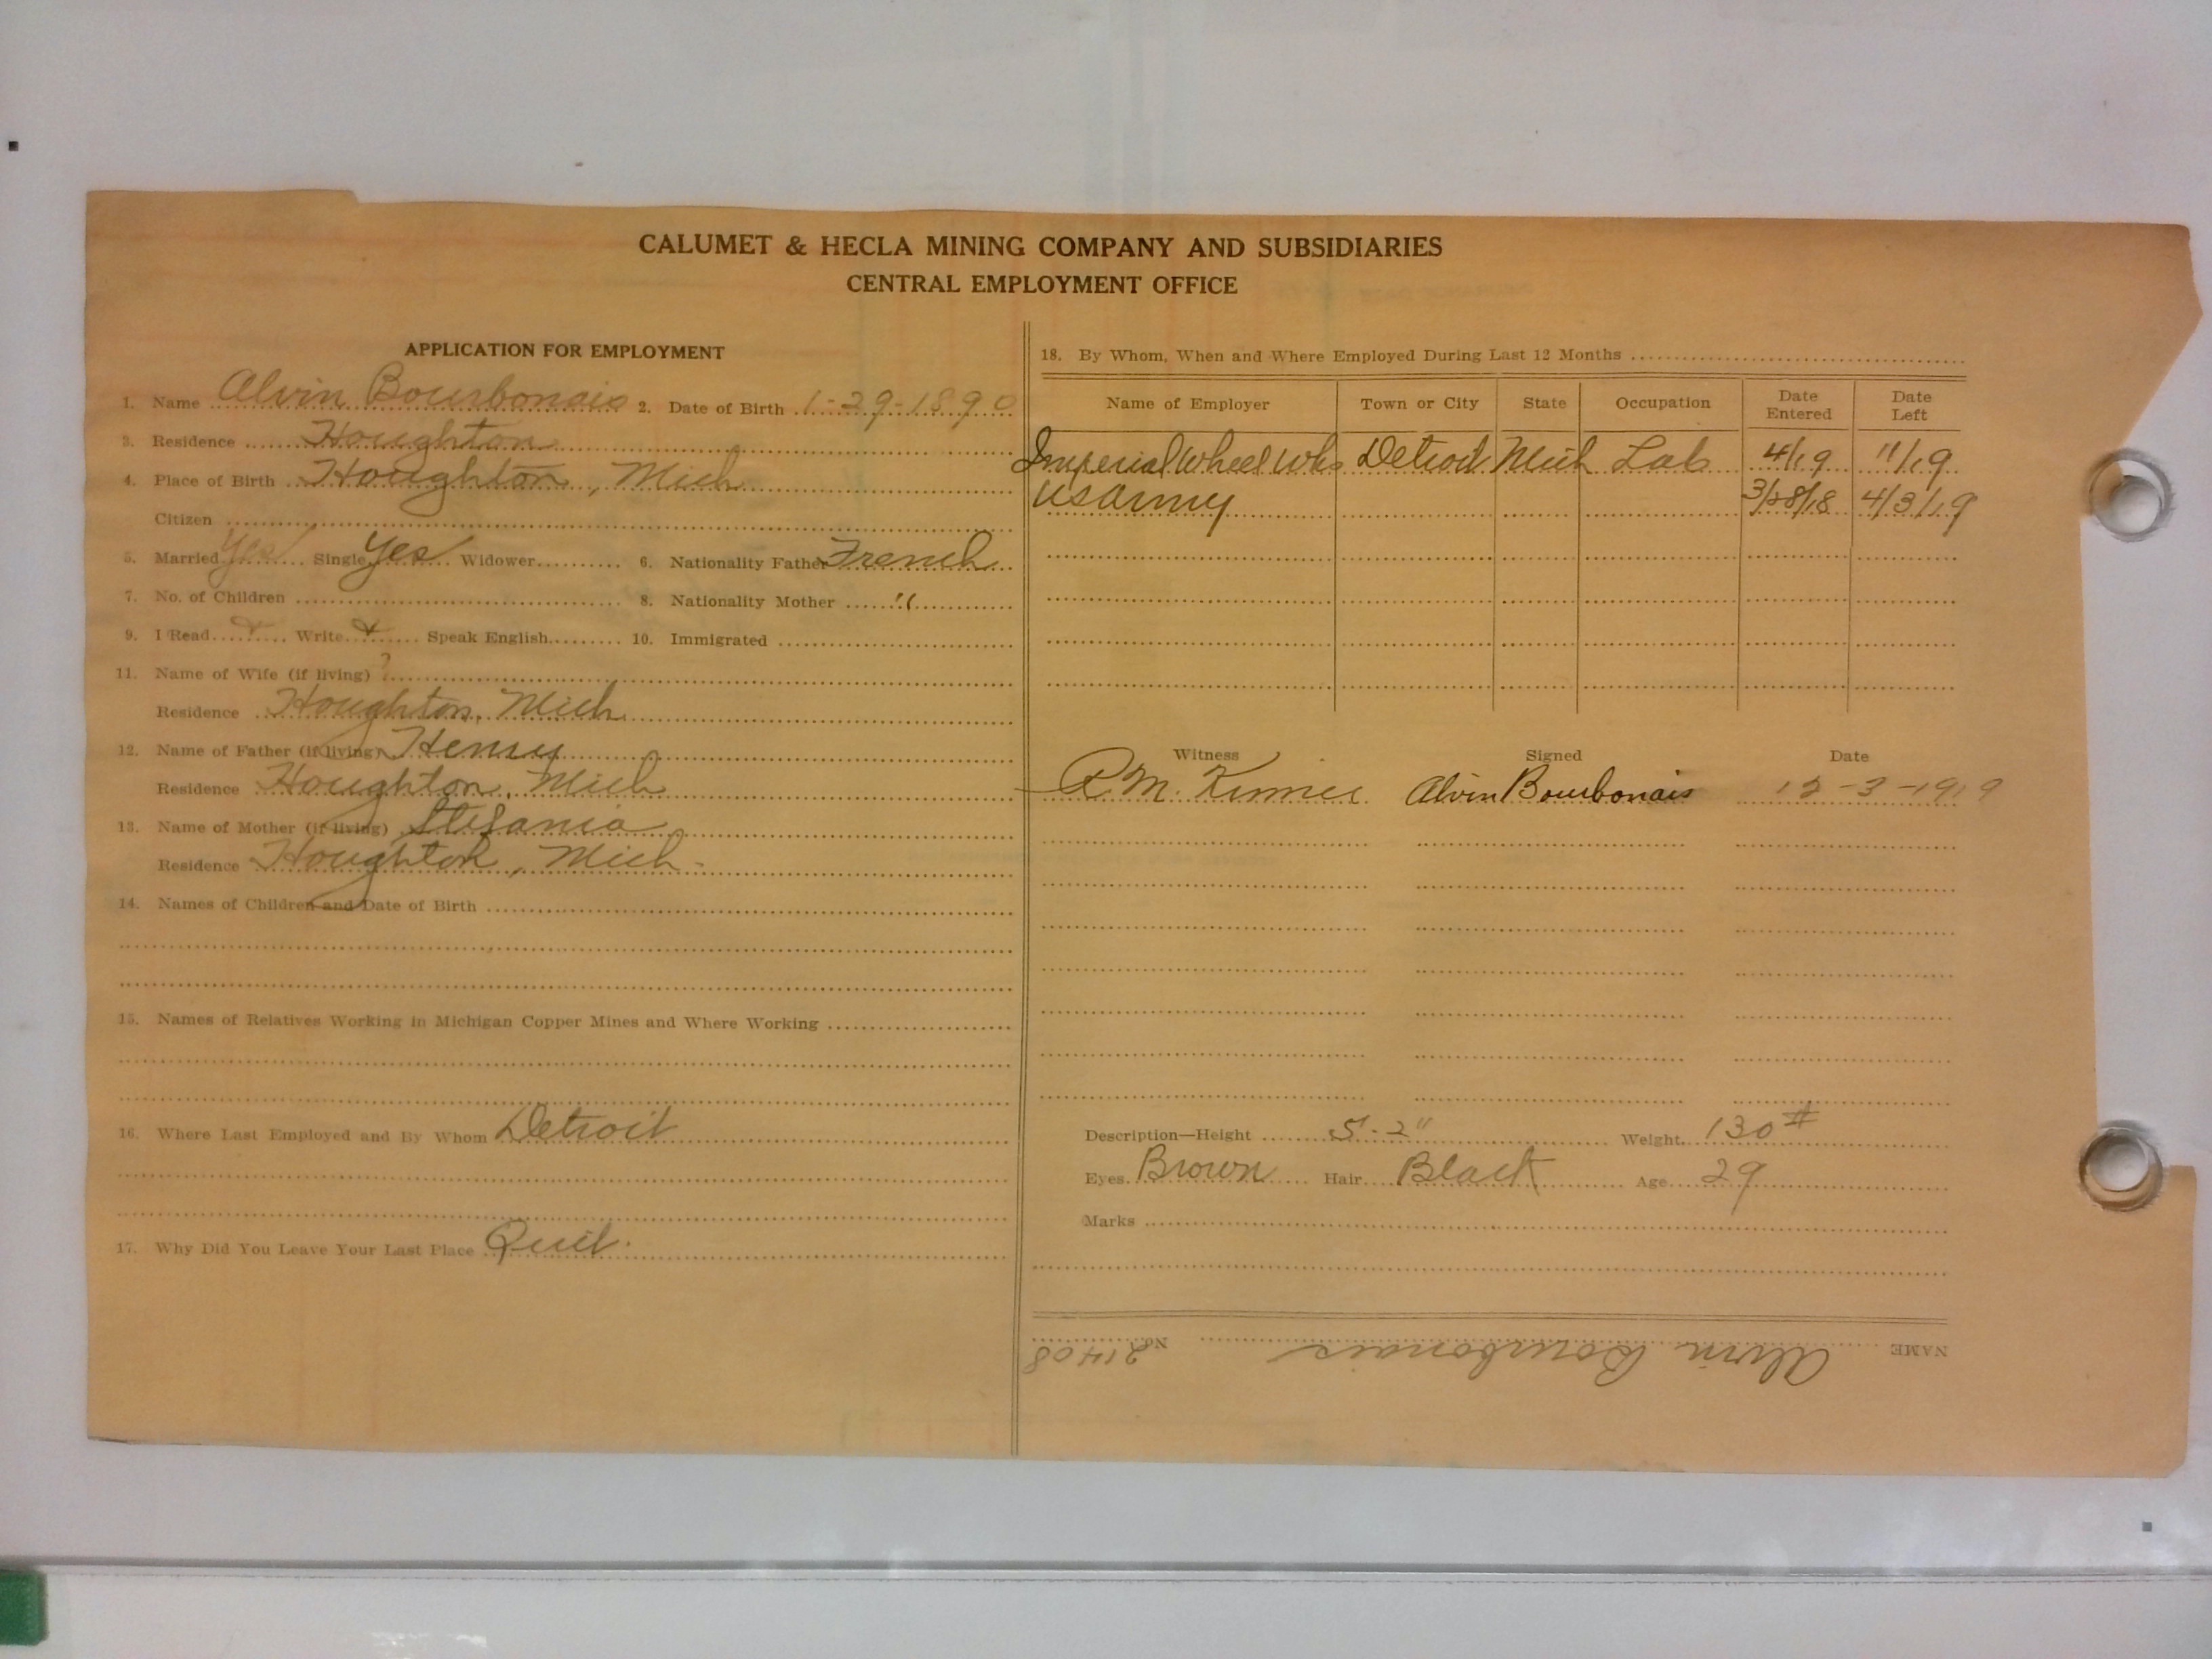 CALUMET & HECLA MINING COMPANY AND SUBSIDIARIES
CENTRAL EMPLOYMENT OFFICE
APPLICATION FOR EMPLOYMENT
1. Name Alvin Bourbonais 2. Date of Birth 1-29-1890
3. Residence Houghton
4. Place of Birth Houghton, Mich
Citizen
5. Married Yes Single Yes Widower 6. Nationality Father French
7. No. of Children 8. Nationality Mother "
9. I Read Write Speak English 10. Immigrated
11. Name of Wife (if living) ?
Residence Houghton, Mich
12. Name of Father (if living) Henry
Residence Houghton, Mich
13. Name of Mother (if living) Stefania
Residence Houghton, Mich.
14. Names of Children and Date of Birth
15. Names of Relatives Working in Michigan Copper Mines and Where Working
16. Where Last Employed and By Whom Detroit
17. Why Did You Leave Your Last Place Quit.
18. By Whom, When and Where Employed During Last 12 Months
Name of Employer Town or City State Occupation Date Entered Date Left
Imperial Wheel Wks Detroit Mich Lab 4/19 11/19
US Army 3/28/18 4/3/19
Witness Signed Date
R.M. Alvin Bourbonais 12-3-1919
Description—Height 5'-2" Weight 130#
Eyes Brown Hair Black Age 29
Marks
NAME Alvin Bourbonais No. 21408